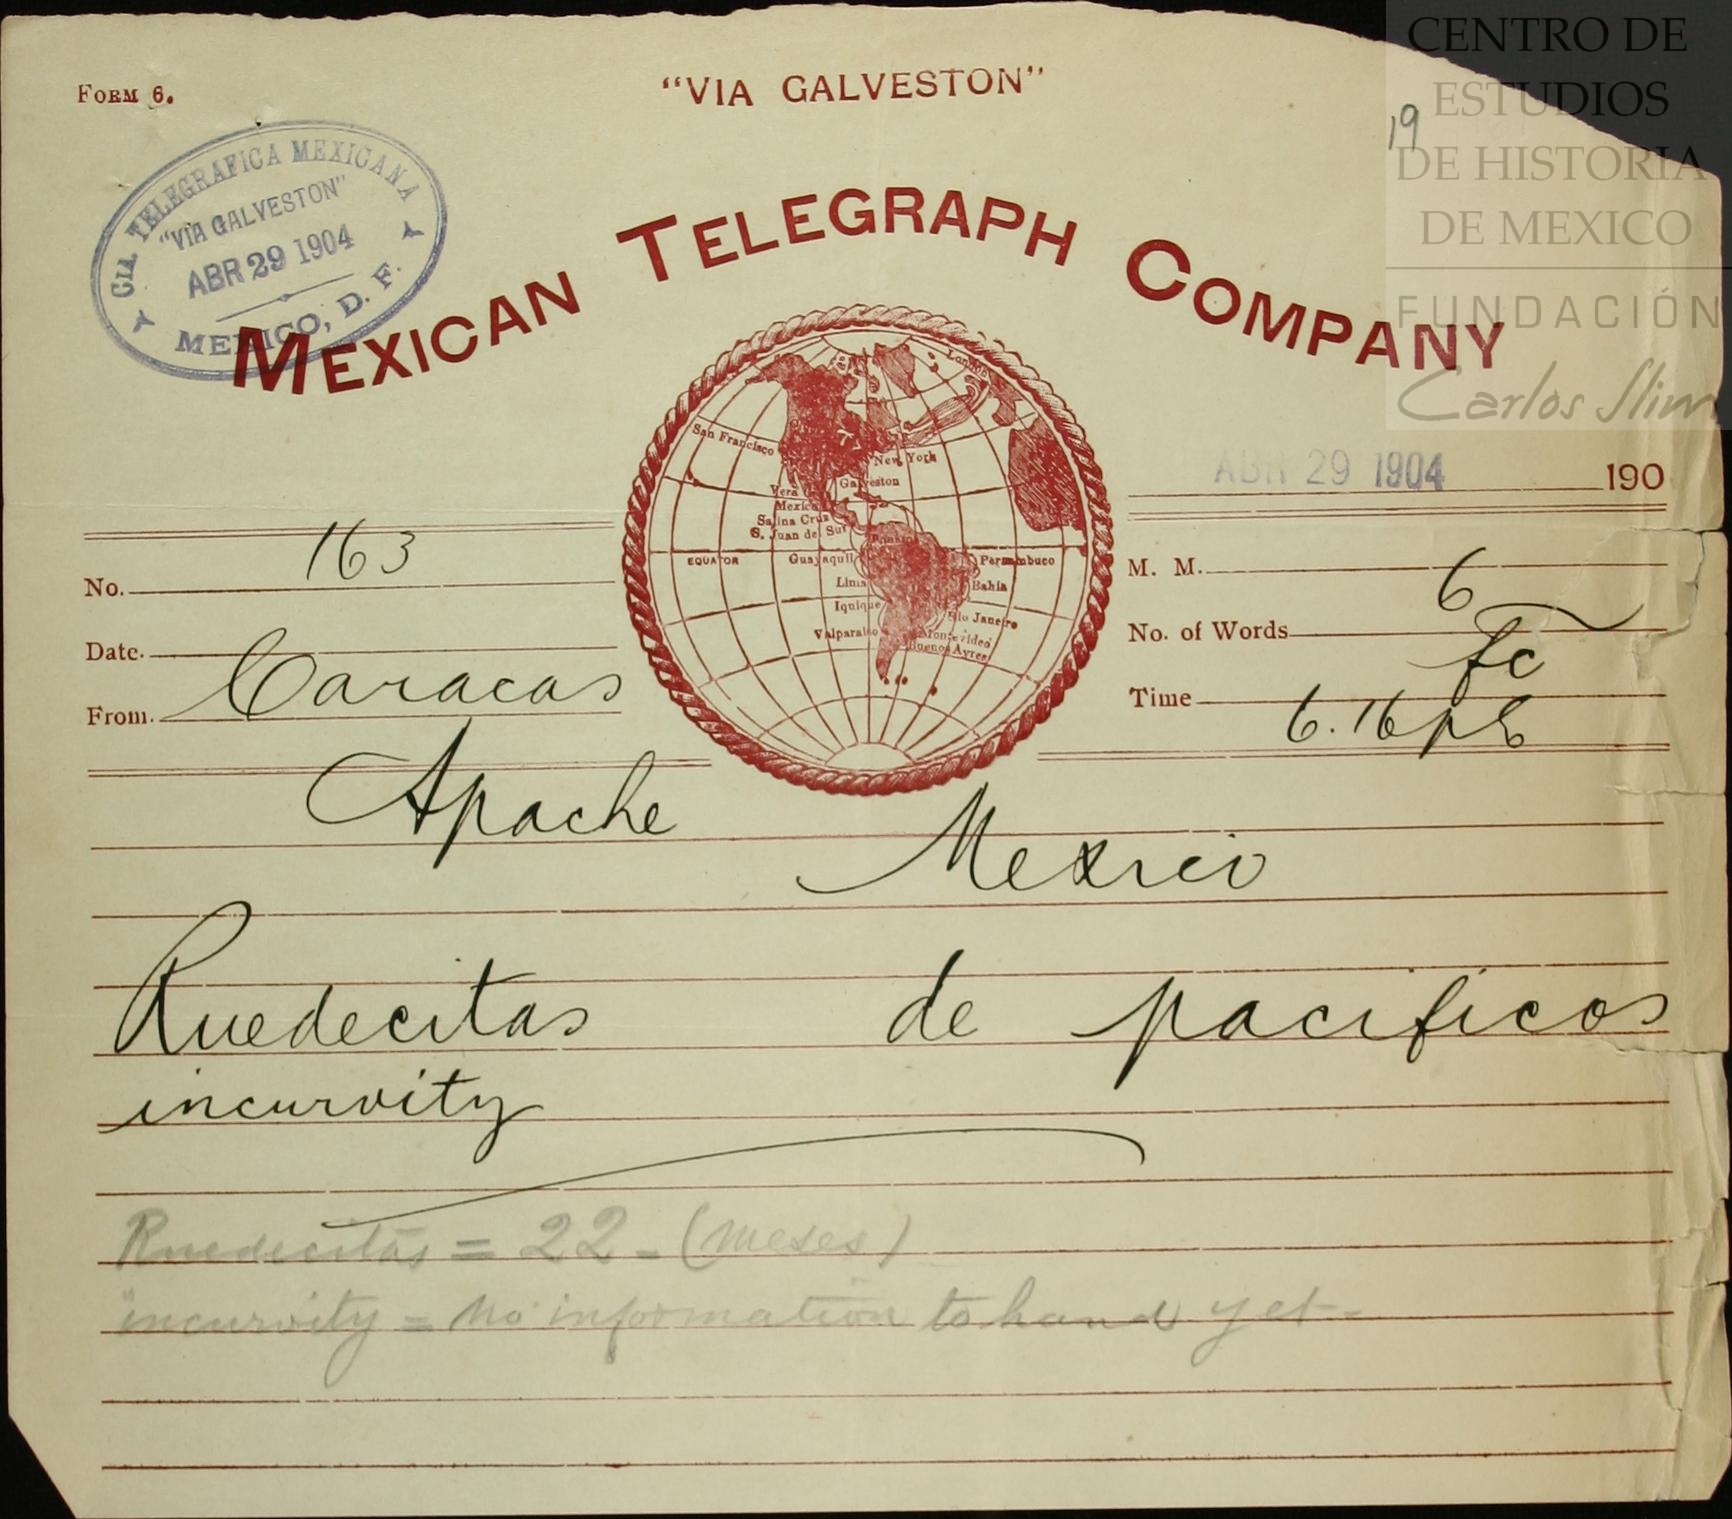 CENTRO DE
ESTUDIOS
DE HISTORIA
DE MEXICO
FUNDACIÓN
Carlos Slim
FORM 6.
"VIA GALVESTON"
19
CIA. TELEGRAFICA MEXICANA
"VIA GALVESTON"
ABR 29 1904
MEXICO, D. F.
MEXICAN TELEGRAPH COMPANY
London
San Francisco
New York
Galveston
Vera Cruz
Mexico
Salina Cruz
S. Juan del Sur
Panama
EQUATOR
Guayaquil
Pernambuco
Lima
Bahia
Iquique
Rio Janeiro
Valparaiso
Montevideo
Buenos Ayres
ABR 29 1904 190
No. 163
M. M.
Date.
No. of Words 6
fc
From. Caracas
Time 6.16p
Apache
Mexico
Ruedecitas de pacificos
incurvity
Ruedecitas = 22 - (meses)
incurvity = no information to hand yet-